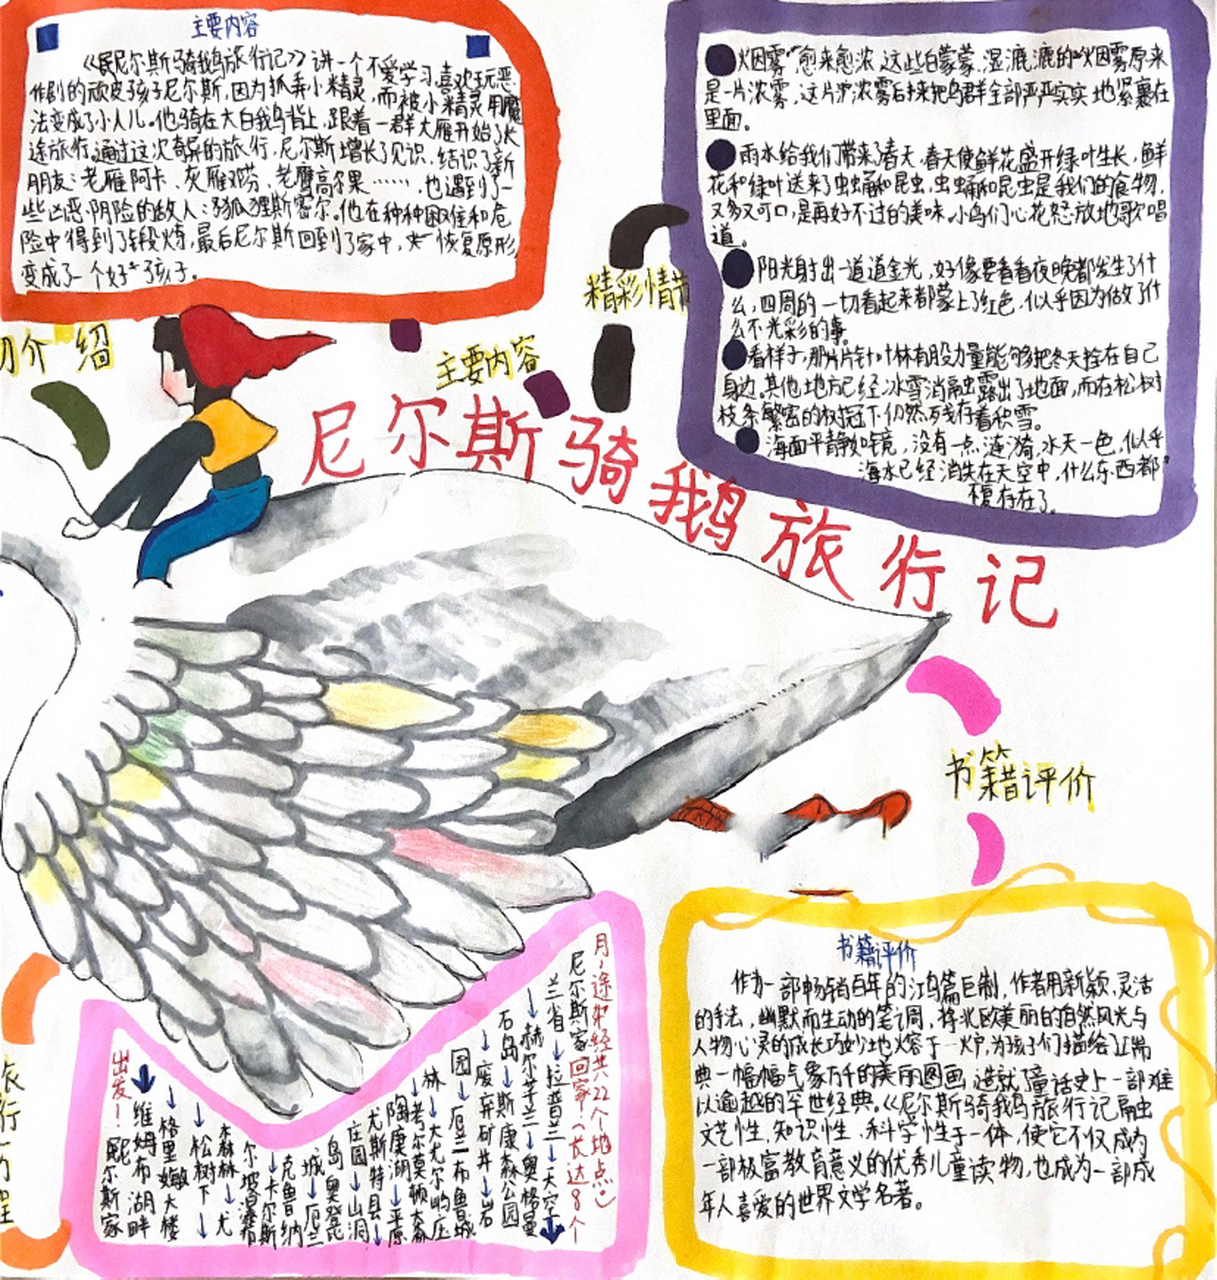 主要内容
《尼尔斯骑鹅旅行记》讲一个不爱学习,喜欢玩恶
作剧的顽皮孩子尼尔斯,因为抓弄小精灵,而被小精灵用魔
法变成了小人儿。他骑在大白鹅背上,跟着一群大雁开始了长
途旅行。通过这次奇异的旅行,尼尔斯增长了见识,结识了新
朋友:老雁阿卡、灰雁邓芬、老鹰高尔果……,也遇到了一
些凶恶、阴险的敌人:狐狸斯密尔。他在种种困难和危
险中得到了锻炼,最后尼尔斯回到了家中,恢复原形,
变成了一个好孩子。
“烟雾”愈来愈浓,这些白蒙蒙、湿漉漉的“烟雾原来
是一片浓雾,这片浓雾后来把鸟群全部严严实实地紧裹在
里面。
雨水给我们带来了春天,春天使鲜花盛开绿叶生长,鲜
花和绿叶送来了虫蛹和昆虫,虫蛹和昆虫是我们的食物,
又多又可口,是再好不过的美味。小鸟们心花怒放地歌唱
道。
阳光射出一道道金光,好像要看看夜晚都发生了什
么,四周的一切看起来都蒙上了红色,似乎因为做了什
么不光彩的事。
看样子,那片片针叶林有股力量能够把冬天拴在自己
身边。其他地方已经冰雪消融露出了地面,而在松树
枝条繁密的树冠下仍然残存着积雪。
海面平静如镜,没有一点涟漪,水天一色,似乎
海水已经消失在天空中,什么东西都
不复存在了。
精彩情节
介绍
主要内容
尼尔斯骑鹅旅行记
书籍评价
书籍评价
作为一部畅销百年的鸿篇巨制,作者用新颖、灵活
的手法,幽默而生动的笔调,将北欧美丽的自然风光与
人物心灵的成长巧妙地熔于一炉,为孩子们描绘了瑞
典一幅幅气象万千的美丽图画,造就童话史上一部难
以逾越的旷世经典。《尼尔斯骑鹅旅行记融
文艺性,知识性,科学性于一体,使它不仅成为
一部极富教育意义的优秀儿童读物,也成为一部成
年人喜爱的世界文学名著。
出发!
尼尔斯家
维姆布湖畔
格里敏大楼
松树下
森林
卡尔斯
克鲁纳
城
厄兰岛
奥登庄园
山洞
尤斯特县
平原
林
大尤尔哟庄园
厄兰布鲁城
废弃矿井
岩石岛
斯康森公园
赫尔辛兰省
拉普兰
奥格曼兰
天空
尼尔斯家
回家!(长达8个
月,途中经共22个地点)